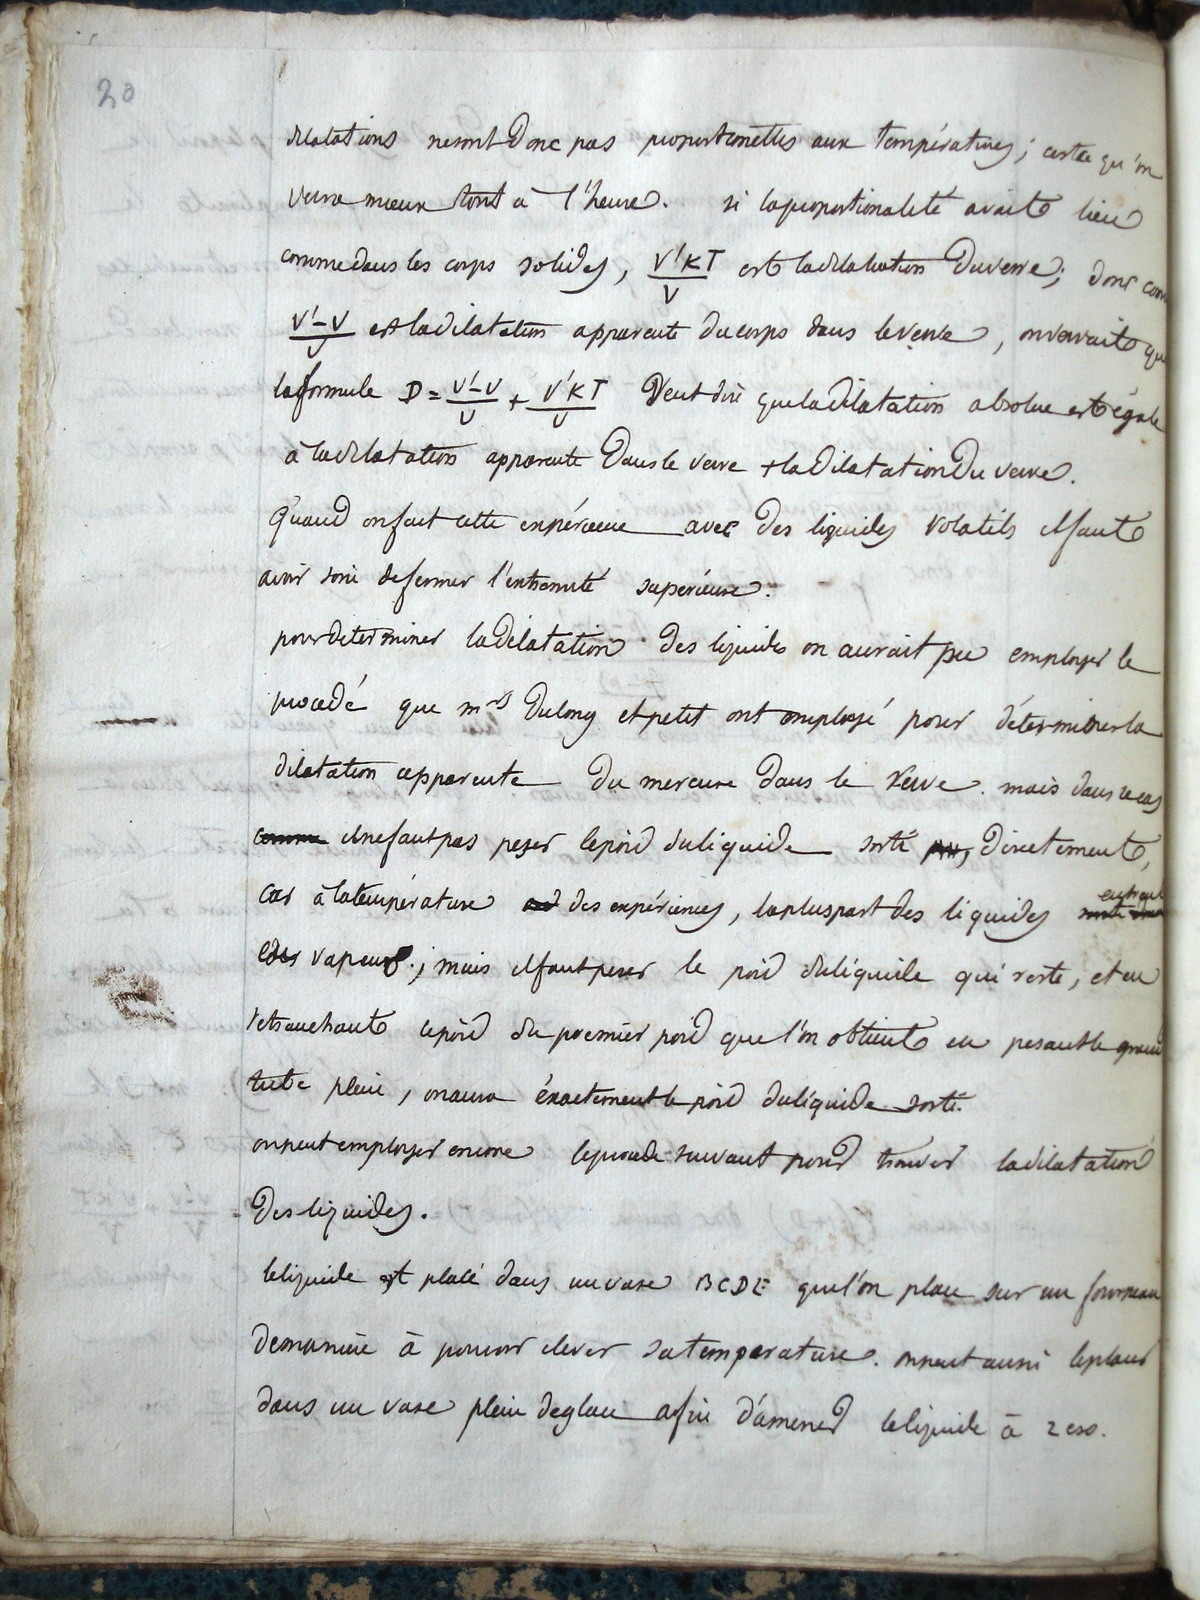 20
dilatations ne sont donc pas proportionelles aux températures; c'est ce qu'on
verra mieux tout à l'heure. si la proportionalité avait lieu
comme dans les corps solides, V'KT/V est la dilatation du verre; donc com
V'-V/V est la dilatation apparente du corps dans le verre, on verrait que
la formule D = V'-V/V + V'KT/V veut dire que la dilatation absolue est égale
à la dilatation apparente dans le verre + la dilatation du verre.
Quand on fait cette expérience avec des liquides volatils il faut
avoir soin de fermer l'extremité supérieure.
pour determiner la dilatation des liquides on aurait pu employer le
procedé que mrs Dulong et petit ont employé pour déterminer la
dilatation apparente du mercure dans le verre. mais dans ce cas
comme il ne faut pas peser le poid du liquide sorti directement,
car à la température des expériences, la pluspart des liquides entrent
en vapeur; mais il faut peser le poid du liquide qui reste, et en
retranchant ce poid du premier poid que l'on obtient en pesant le grand
tube plein, on aura éxactement le poid du liquide sorti.
on peut employer encore le procedé suivant pour trouver la dilatation
des liquides.
le liquide est placé dans un vase BCDE que l'on place sur un fourneau
de manière à pouvoir elever sa temperature. on peut aussi le placer
dans un vase plein de glace afin d'amener le liquide à zero.